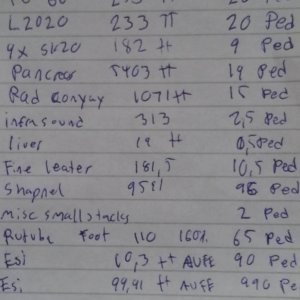 L2020 233 tt 20 Ped
9x sk20 182 tt 9 Ped
Pancrear 5403 tt 19 Ped
Rad conyay 1071 tt 15 Ped
infrasound 313 2,5 Ped
liver 19 tt 0,5 Ped
Fine leater 181,5 10,5 Ped
Shapnel 9581 96 Ped
misc smallstacks 2 Ped
Rutube Foot 110 160% 65 Ped
Esi 60,3 tt AUFE 90 Ped
Esi 99,91 tt AUFE 990 Ped